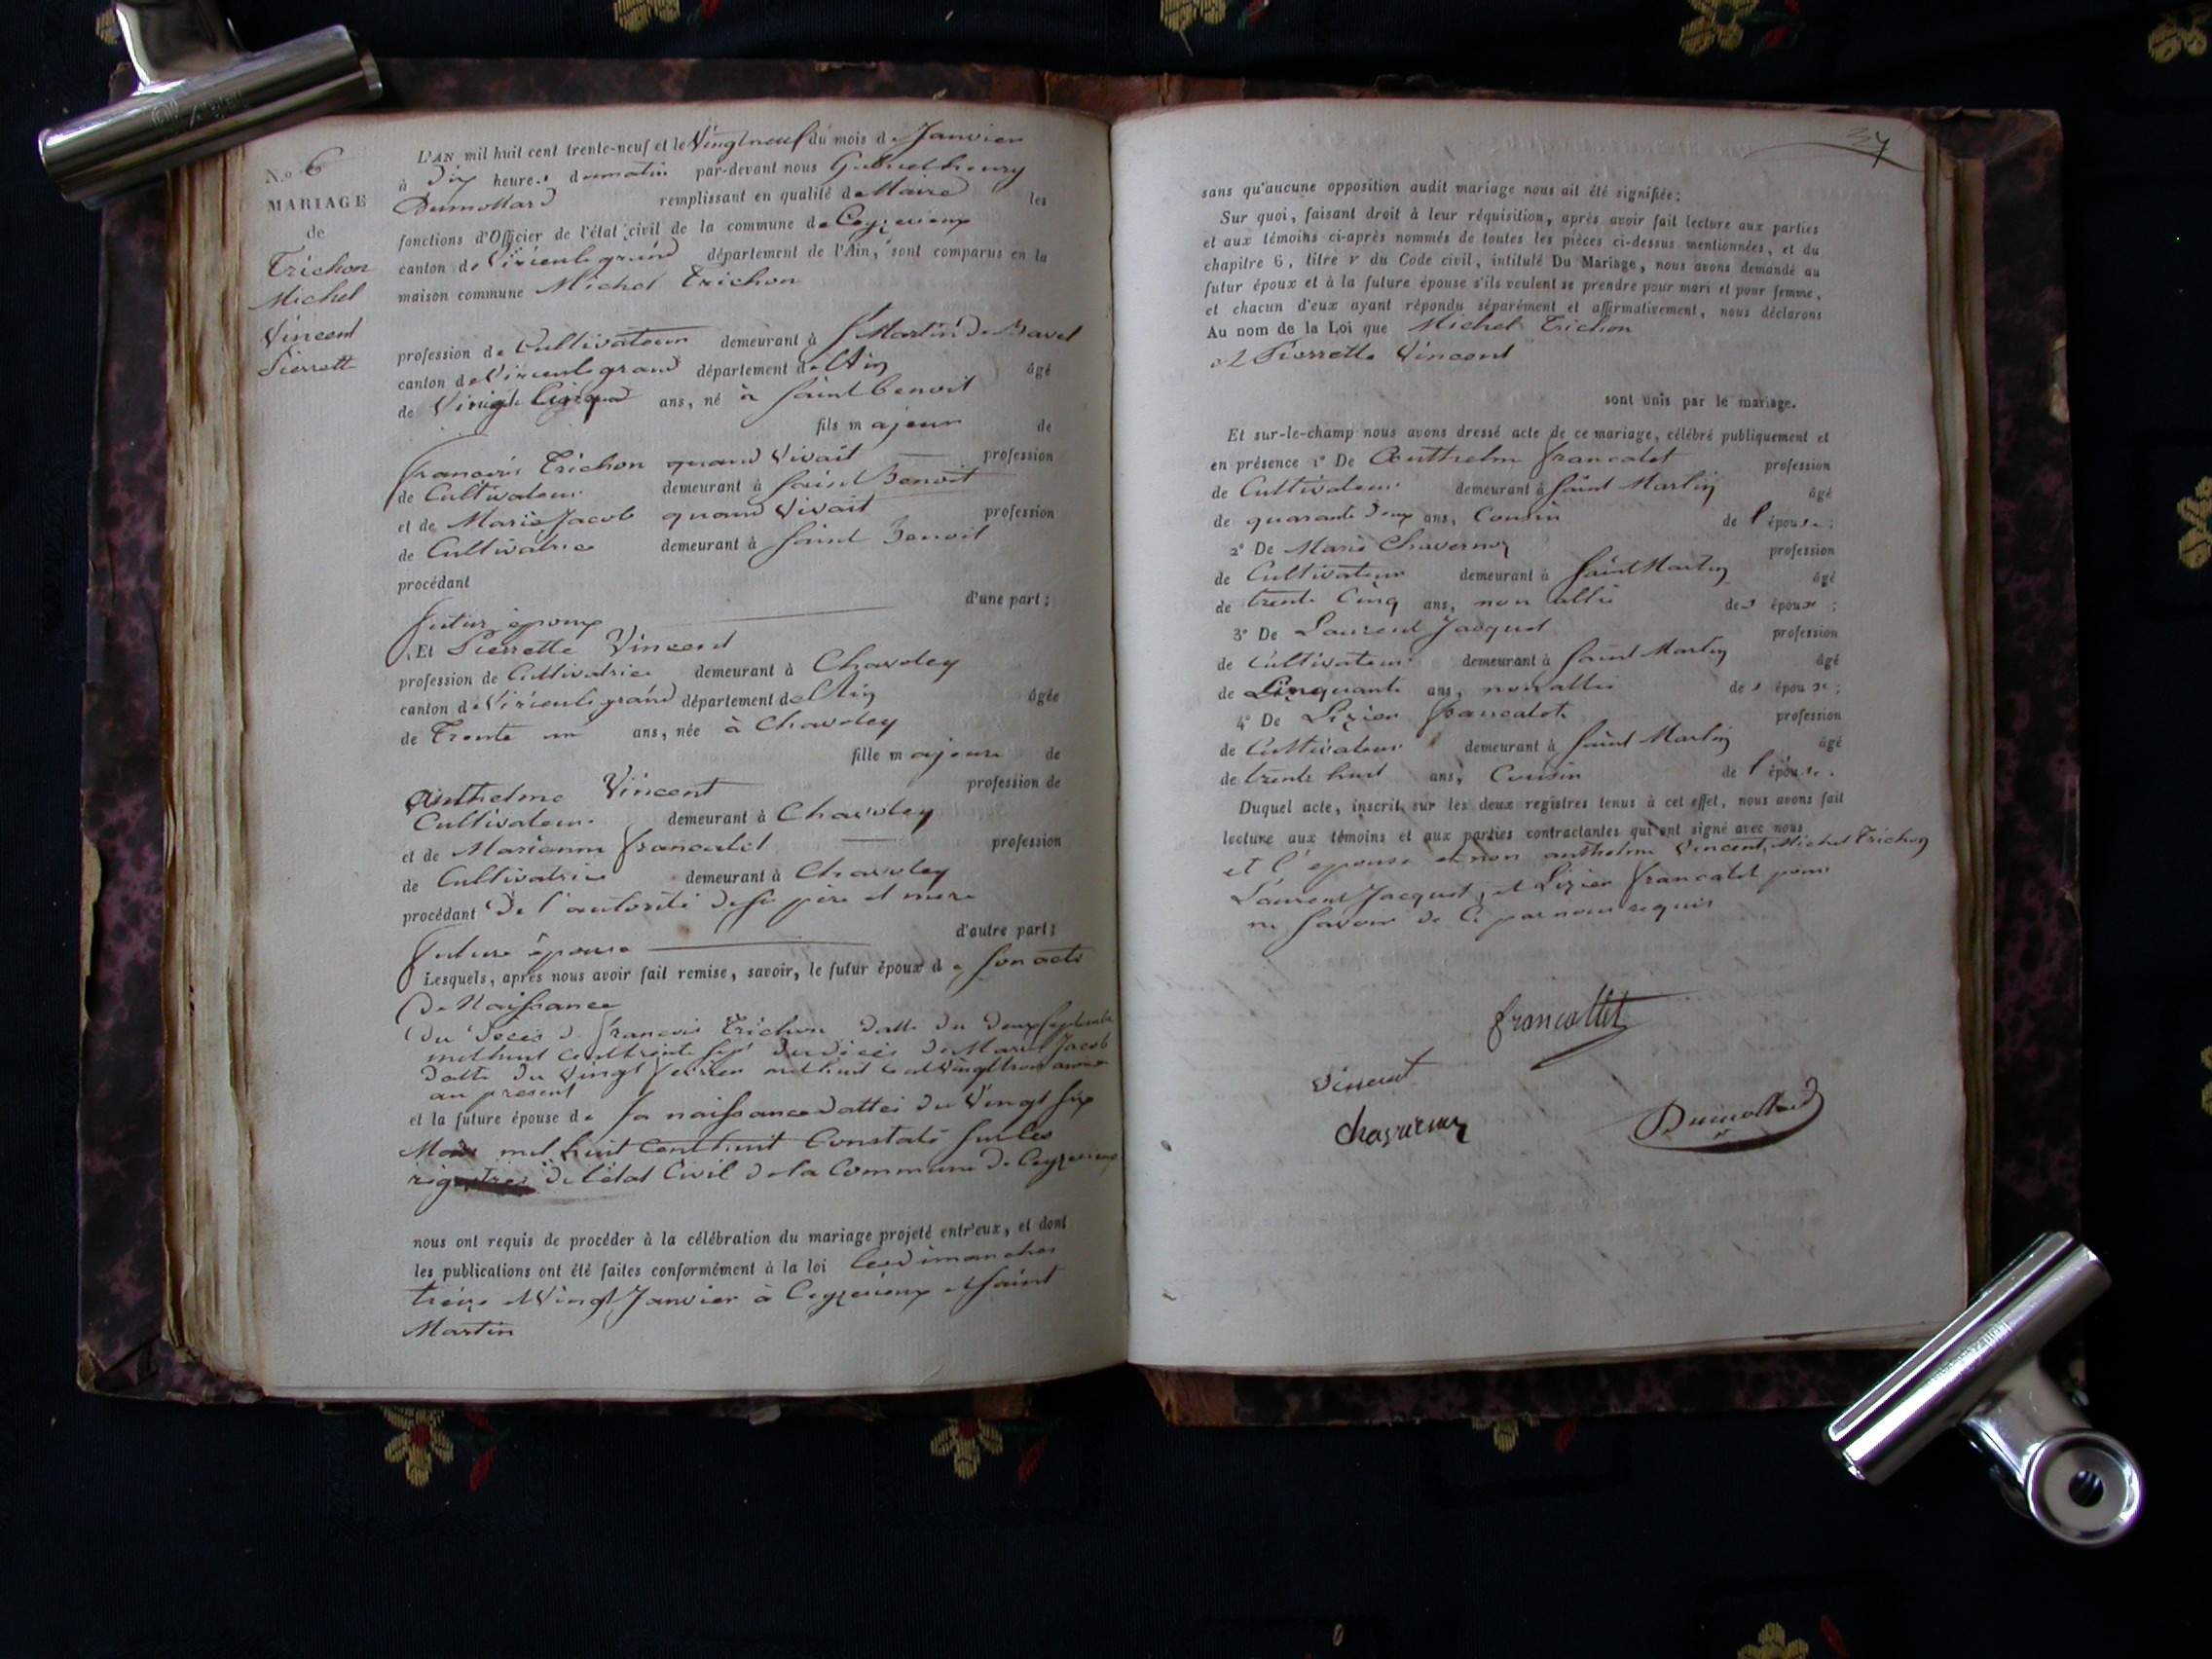 N.o 6
MARIAGE
de
Trichon
Michel
Vincent
Pierrette
L'AN mil huit cent trente-neuf et le Vingt neuf du mois de Janvier
à Dix heures du matin par-devant nous
Dumollard remplissant en qualité de Maire les
fonctions d'Officier de l'état civil de la commune de Ceyzerieux
canton de Virieu le grand département de l'Ain, sont comparus en la
maison commune Michel Trichon
profession de Cultivateur demeurant à St Martin De Bavel
canton de Virieu le grand département de l'Ain âgé
de Vingt Cinq ans, né à Saint benoit
fils majeur de
françois Trichon quand Vivait profession
de Cultivateur demeurant à Saint Benoit
et de Marie Jacob quand Vivait profession
de Cultivatrice demeurant à Saint Benoit
procédant
d'une part;
futur époux
Et Pierrette Vincent
profession de Cultivatrice demeurant à Chavoley
canton de Virieu le grand département de l'Ain âgée
de Trente un ans, née à Chavoley
fille majeure de
Anthelme Vincent profession de
Cultivateur demeurant à Chavoley
et de Marianne francalet profession
de Cultivatrice demeurant à Chavoley
procédant De l'autorité de ses père et mère
d'autre part;
future épouse
Lesquels, après nous avoir fait remise, savoir, le futur époux de son acte
De Naissance
Du Décès de francois Trichon datte du deux septembre
mil huit cent trente sept du décès de Marie Jacob
datte du Vingt fevrier mil huit cent Vingt trois
au present
et la future épouse de sa naissance dattée du Vingt six
Mars mil huit cent huit Constaté sur les
registres de l'état Civil de la Commune de Ceyzerieux
nous ont requis de procéder à la célébration du mariage projeté entr'eux, et dont
les publications ont été faites conformément à la loi les dimanches
treize et Vingt Janvier à Ceyzerieux et Saint
Martin
37
sans qu'aucune opposition audit mariage nous ait été signifiée;
Sur quoi, faisant droit à leur réquisition, après avoir fait lecture aux parties
et aux témoins ci-après nommés de toutes les pièces ci-dessus mentionnées, et du
chapitre 6, titre V du Code civil, intitulé Du Mariage, nous avons demandé au
futur époux et à la future épouse s'ils veulent se prendre pour mari et pour femme,
et chacun d'eux ayant répondu séparément et affirmativement, nous déclarons
Au nom de la Loi que Michel Trichon
et Pierrette Vincent
sont unis par le mariage.
Et sur-le-champ nous avons dressé acte de ce mariage, célébré publiquement et
en présence 1° De Anthelm francalet profession
de Cultivateur demeurant à Saint Martin âgé
de quarante deux ans, Cousin de l'épouse;
2° De Marie Chavernoz profession
de Cultivateur demeurant à Saint Martin âgé
de trente Cinq ans, non allié des époux;
3° De Laurent Jacquet profession
de Cultivateur demeurant à Saint Martin âgé
de Cinquante ans, non allié des époux;
4° De Lizier francalet profession
de Cultivateur demeurant à Saint Martin âgé
de trente huit ans, Cousin de l'épouse.
Duquel acte, inscrit sur les deux registres tenus à cet effet, nous avons fait
lecture aux témoins et aux parties contractantes qui ont signé avec nous
et l'épouse et non anthelm Vincent, Michel Trichon
Laurent Jacquet, et Lizier francalet pour
ne savoir de ce par nous requis
francallet
Vincent
Dumollard